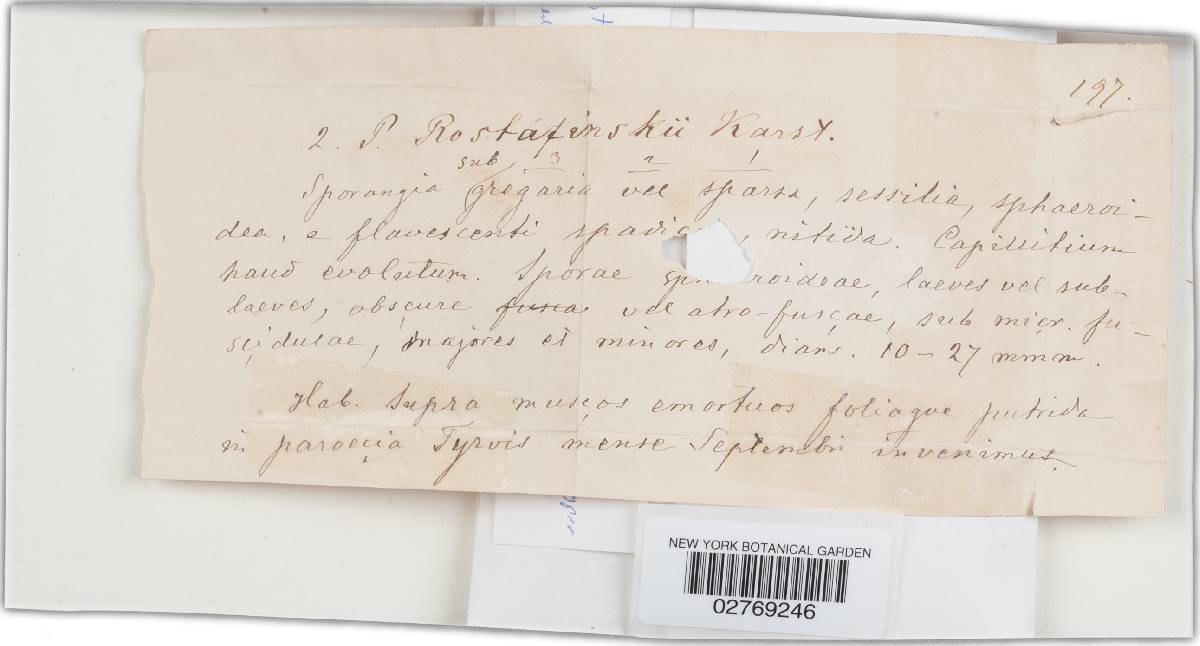 197.
2. P. Rostafinskii Karst.
sub 3 2 1
Sporangia gregaria vel sparsa, sessilia, sphaeroi-
dea, e flavescenti spadic , nitida. Capillitium
haud evolutum. Sporae sp roideae, laeves vel sub-
laeves, obscure fusca vel atro-fuscae, sub micr. fu-
scidulae, majores et minores, diam. 10-27 mmm.
Hab. supra muscos emortuos foliaque putrida
in paroecia Tyrvis mense Septembri invenimus.
NEW YORK BOTANICAL GARDEN
02769246